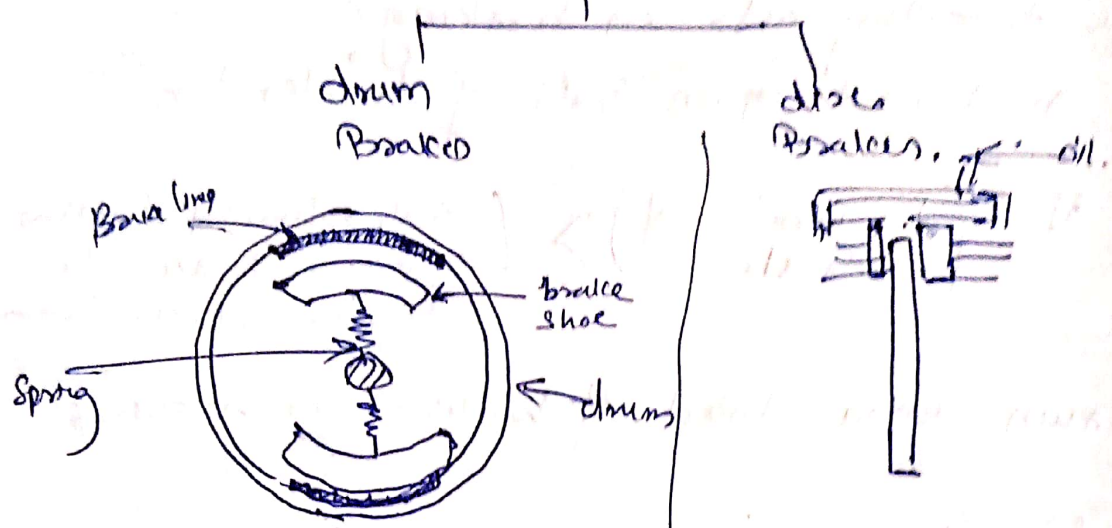 drum
Brakes
disc
Brakes.
oil.
Brake ling
brake
shoe
Spring
drums